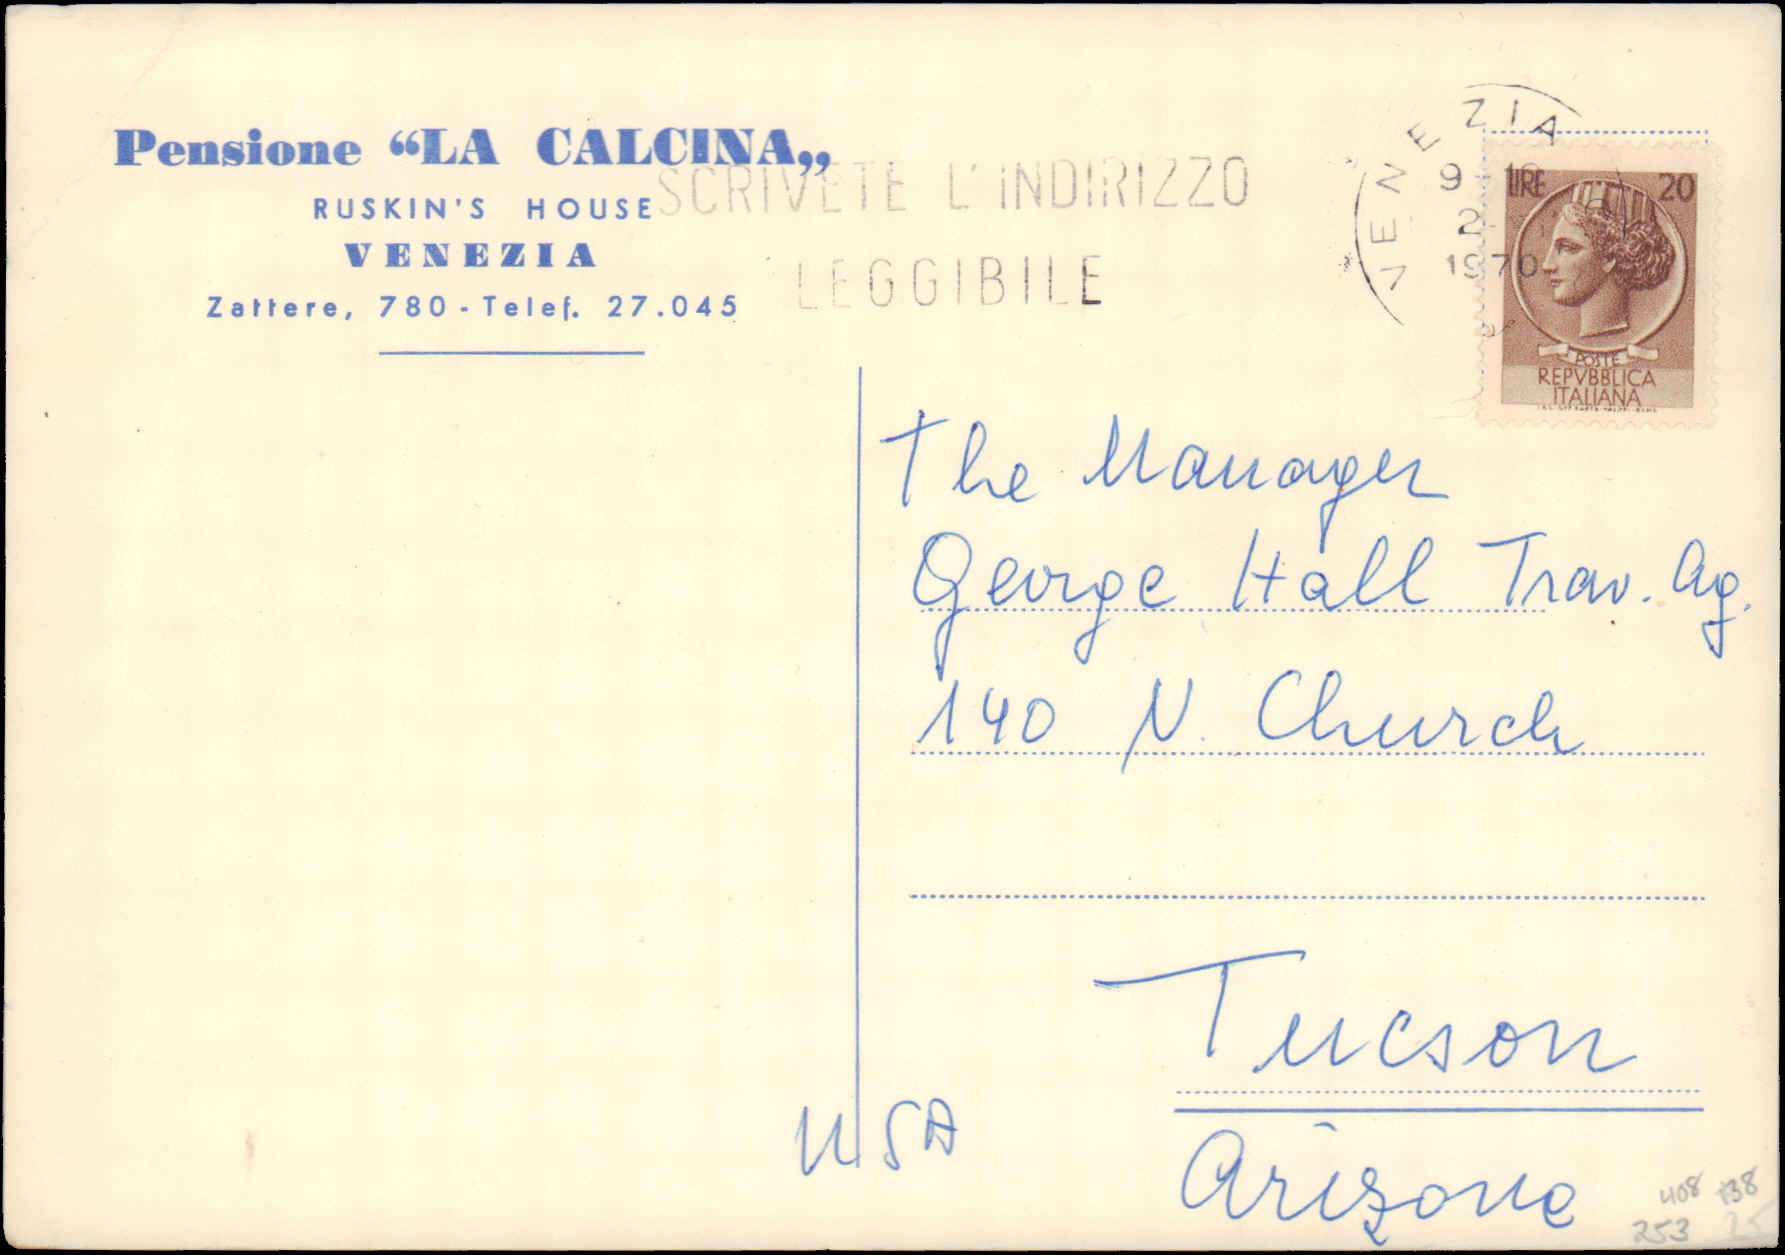 Pensione “LA CALCINA„
RUSKIN'S HOUSE
VENEZIA
Zattere, 780 - Telef. 27.045
SCRIVETE L'INDIRIZZO
LEGGIBILE
VENEZIA
9
2
1970
LIRE 20
POSTE
REPVBBLICA
ITALIANA
The Manager
George Hall Trav. Ag.
140 N. Church
Tucson
USA
Arizona
408 138
253 25